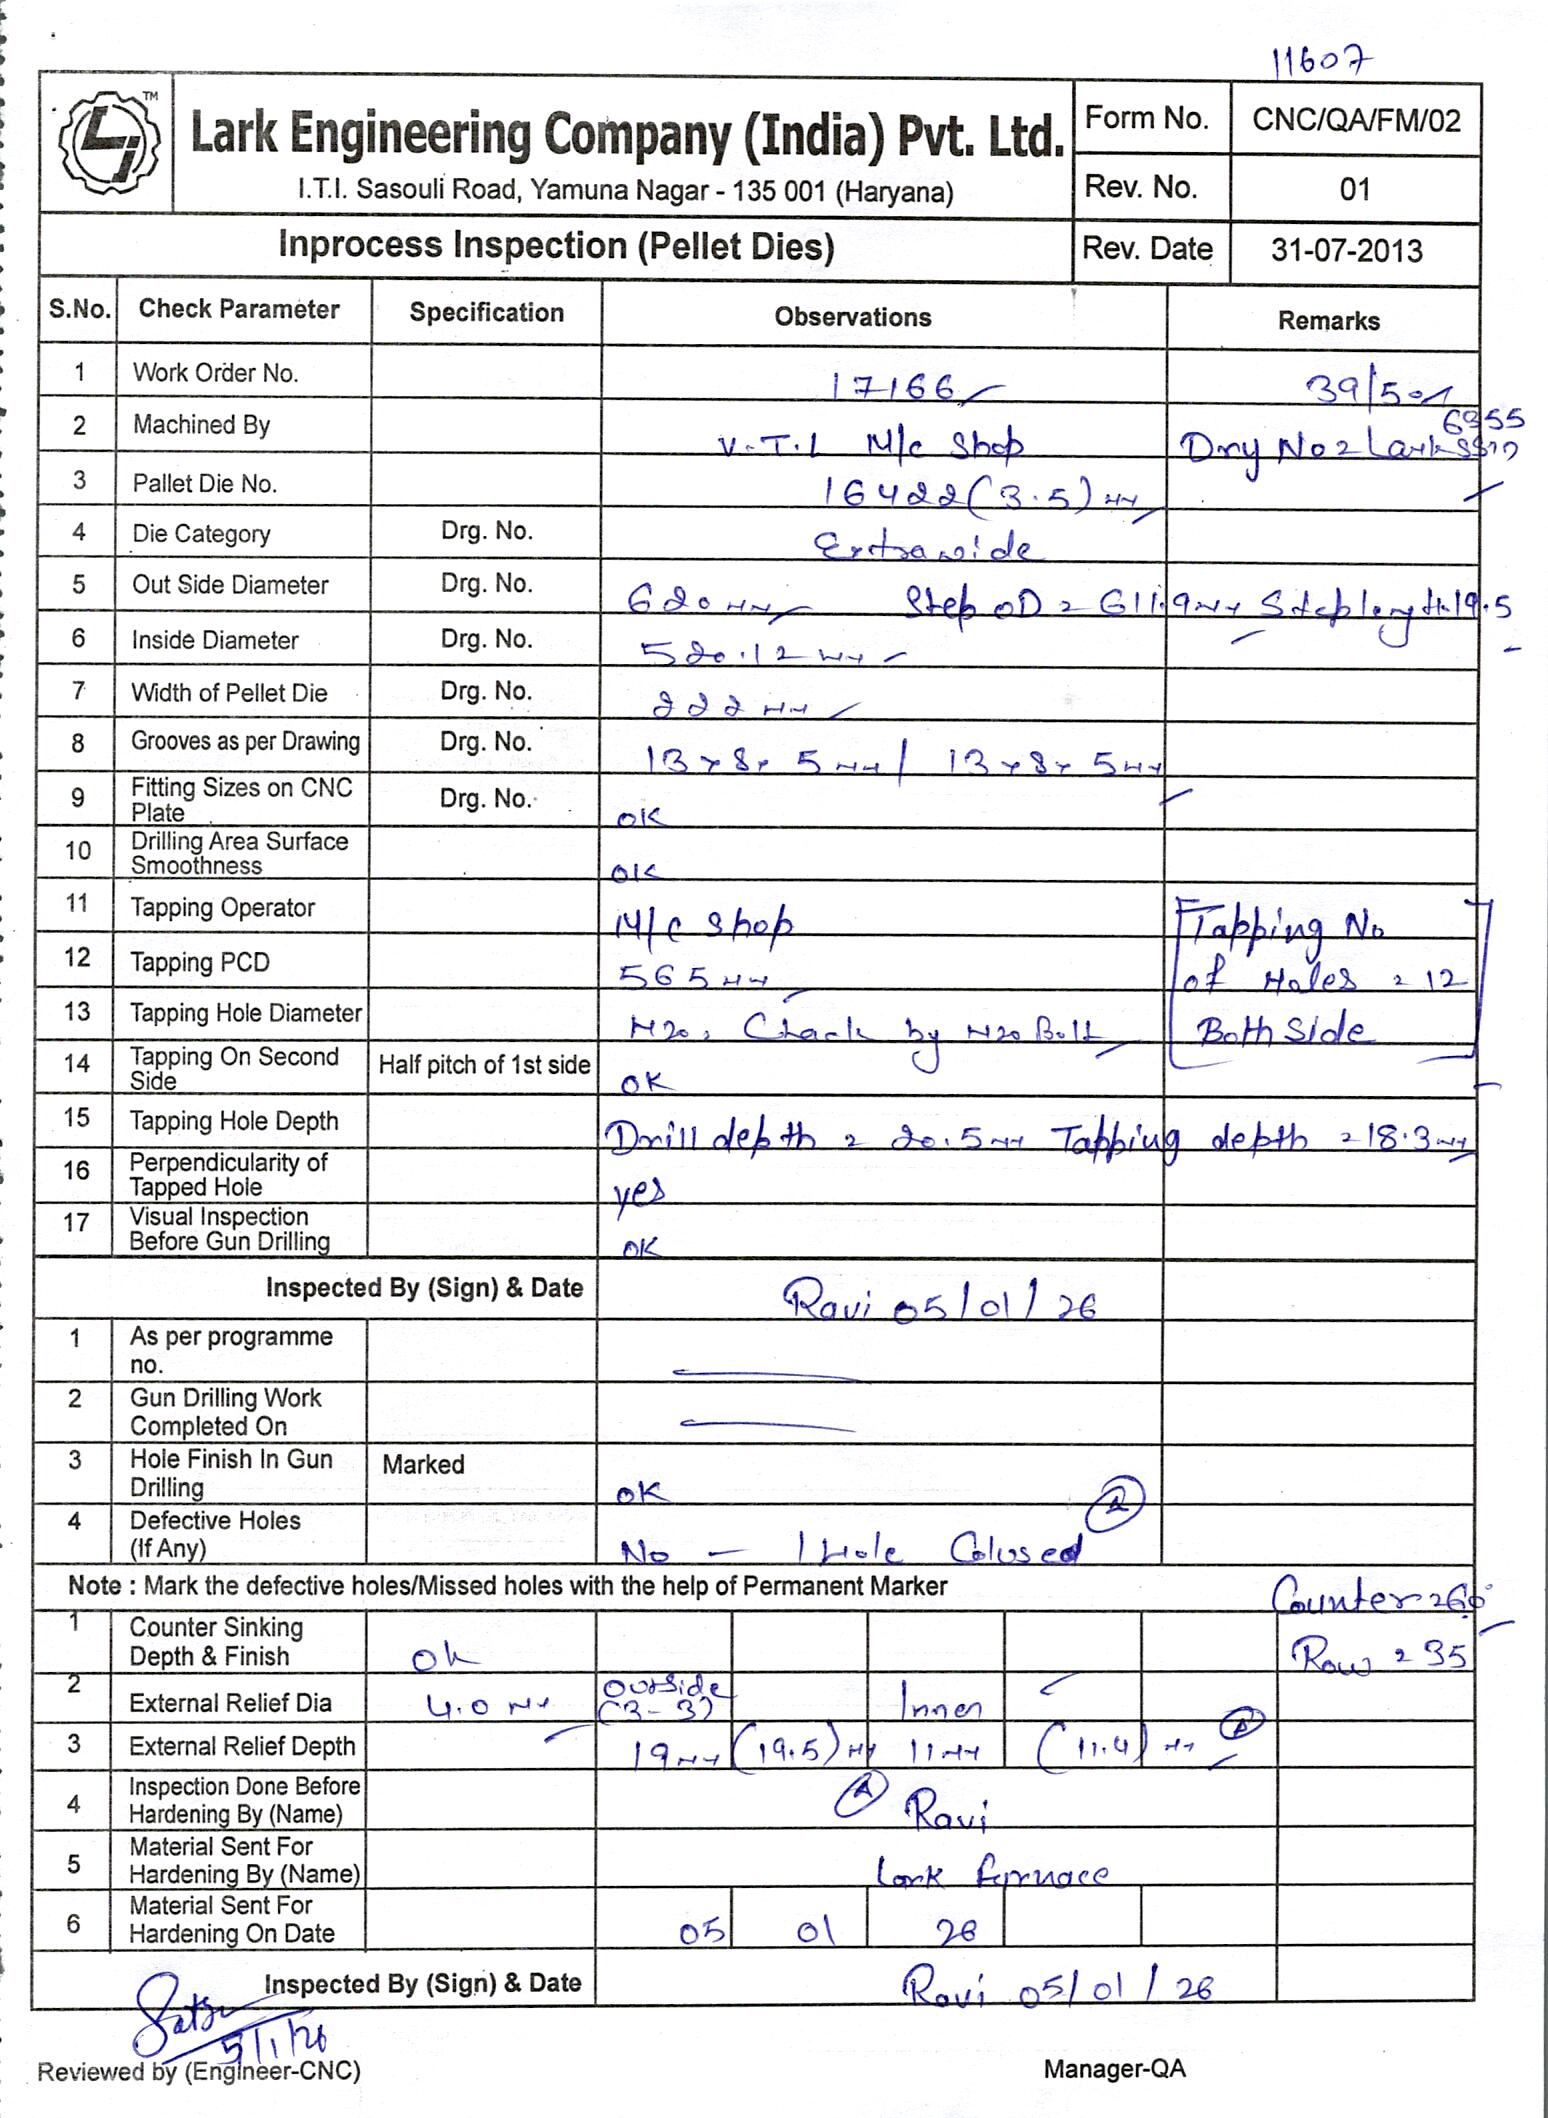 11607
TM
Lark Engineering Company (India) Pvt. Ltd.
I.T.I. Sasouli Road, Yamuna Nagar - 135 001 (Haryana)
Form No. CNC/QA/FM/02
Rev. No. 01
Inprocess Inspection (Pellet Dies) Rev. Date 31-07-2013
S.No. Check Parameter Specification Observations Remarks
1 Work Order No. 17166 39/501
2 Machined By V.T.L M/c Shop Drg No = Lark 6355
3 Pallet Die No. 16422 (3.5) mm
4 Die Category Drg. No. Extrawide
5 Out Side Diameter Drg. No. 620 mm Step OD = 611.9 mm Step length 19.5
6 Inside Diameter Drg. No. 520.12 mm
7 Width of Pellet Die Drg. No. 222 mm
8 Grooves as per Drawing Drg. No. 13 x 8 x 5 mm / 13 x 8 x 5 mm
9 Fitting Sizes on CNC Plate Drg. No. OK
10 Drilling Area Surface Smoothness OK
11 Tapping Operator M/c Shop Tapping No
12 Tapping PCD 565 mm of Holes = 12
13 Tapping Hole Diameter M20, Chack by M20 Bolt Both Side
14 Tapping On Second Side Half pitch of 1st side OK
15 Tapping Hole Depth Drill depth = 20.5 mm Tapping depth = 18.3 mm
16 Perpendicularity of Tapped Hole yes
17 Visual Inspection Before Gun Drilling OK
Inspected By (Sign) & Date Ravi 05/01/26
1 As per programme no.
2 Gun Drilling Work Completed On
3 Hole Finish In Gun Drilling Marked OK
4 Defective Holes (If Any) No - 1 Hole Colused
Note : Mark the defective holes/Missed holes with the help of Permanent Marker Counter = 60°
1 Counter Sinking Depth & Finish Ok Row = 35
2 External Relief Dia 4.0 mm Outside (3-3) Inner
3 External Relief Depth 19 mm (19.5) mm 11 mm (11.4) mm
4 Inspection Done Before Hardening By (Name) Ravi
5 Material Sent For Hardening By (Name) Lark furnace
6 Material Sent For Hardening On Date 05 01 26
Inspected By (Sign) & Date Ravi 05/01/26
5/1/26
Reviewed by (Engineer-CNC) Manager-QA